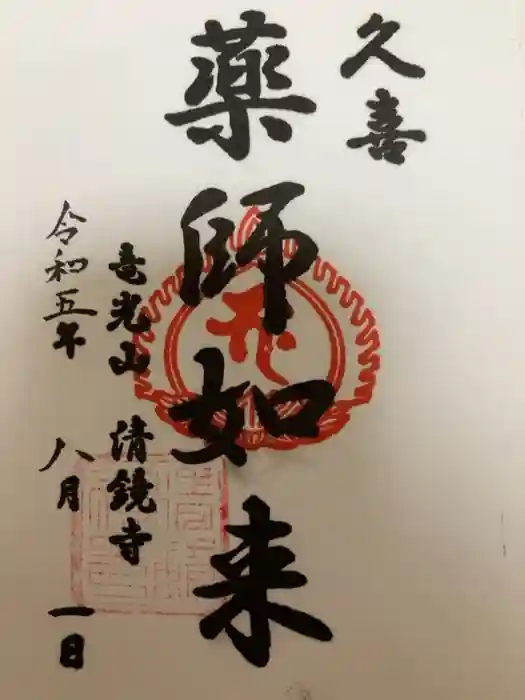 久喜
薬師如来
光山 清鏡寺
令和五年 八月 一日